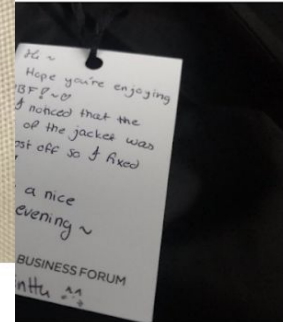 Hi ~
Hope you're enjoying
BF! ~♡
I noticed that the
of the jacket was
ost off so I fixed
a nice
evening ~
BUSINESS FORUM
^^